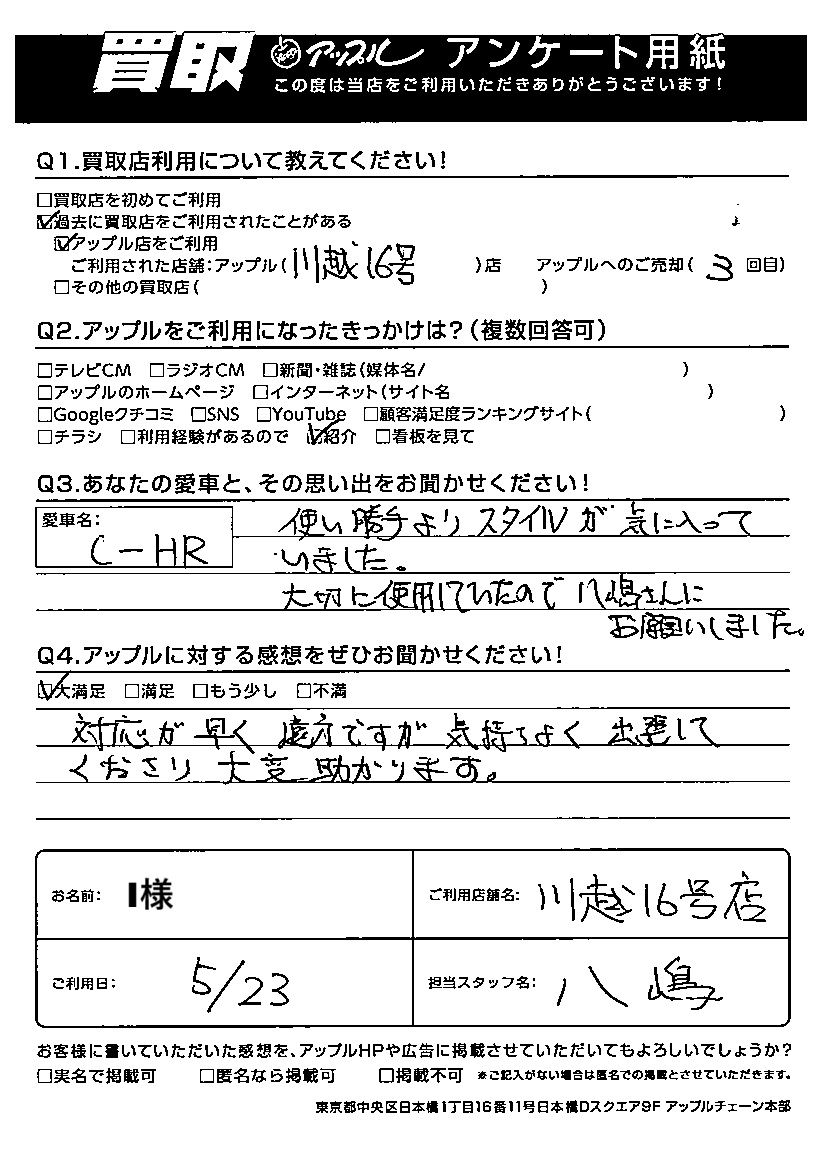 買取 アップル アンケート用紙
この度は当店をご利用いただきありがとうございます!
Q1.買取店利用について教えてください!
□買取店を初めてご利用
☑過去に買取店をご利用されたことがある
☑アップル店をご利用
ご利用された店舗:アップル(川越16号)店 アップルへのご売却(3回目)
□その他の買取店( )
Q2.アップルをご利用になったきっかけは?(複数回答可)
□テレビCM □ラジオCM □新聞・雑誌(媒体名/ )
□アップルのホームページ □インターネット(サイト名 )
□Googleクチコミ □SNS □YouTube □顧客満足度ランキングサイト( )
□チラシ □利用経験があるので ☑紹介 □看板を見て
Q3.あなたの愛車と、その思い出をお聞かせください!
愛車名:
C-HR
使い勝手よりスタイルが気に入って
いました。
大切に使用していたので八嶋さんに
お願いしました。
Q4.アップルに対する感想をぜひお聞かせください!
☑大満足 □満足 □もう少し □不満
対応が早く遠方ですが気持ちよく出張して
くださり大変助かります。
お名前: I様
ご利用店舗名: 川越16号店
ご利用日: 5/23
担当スタッフ名: 八嶋
お客様に書いていただいた感想を、アップルHPや広告に掲載させていただいてもよろしいでしょうか?
□実名で掲載可 □匿名なら掲載可 □掲載不可 *ご記入がない場合は匿名での掲載とさせていただきます。
東京都中央区日本橋1丁目16番11号日本橋Dスクエア9F アップルチェーン本部